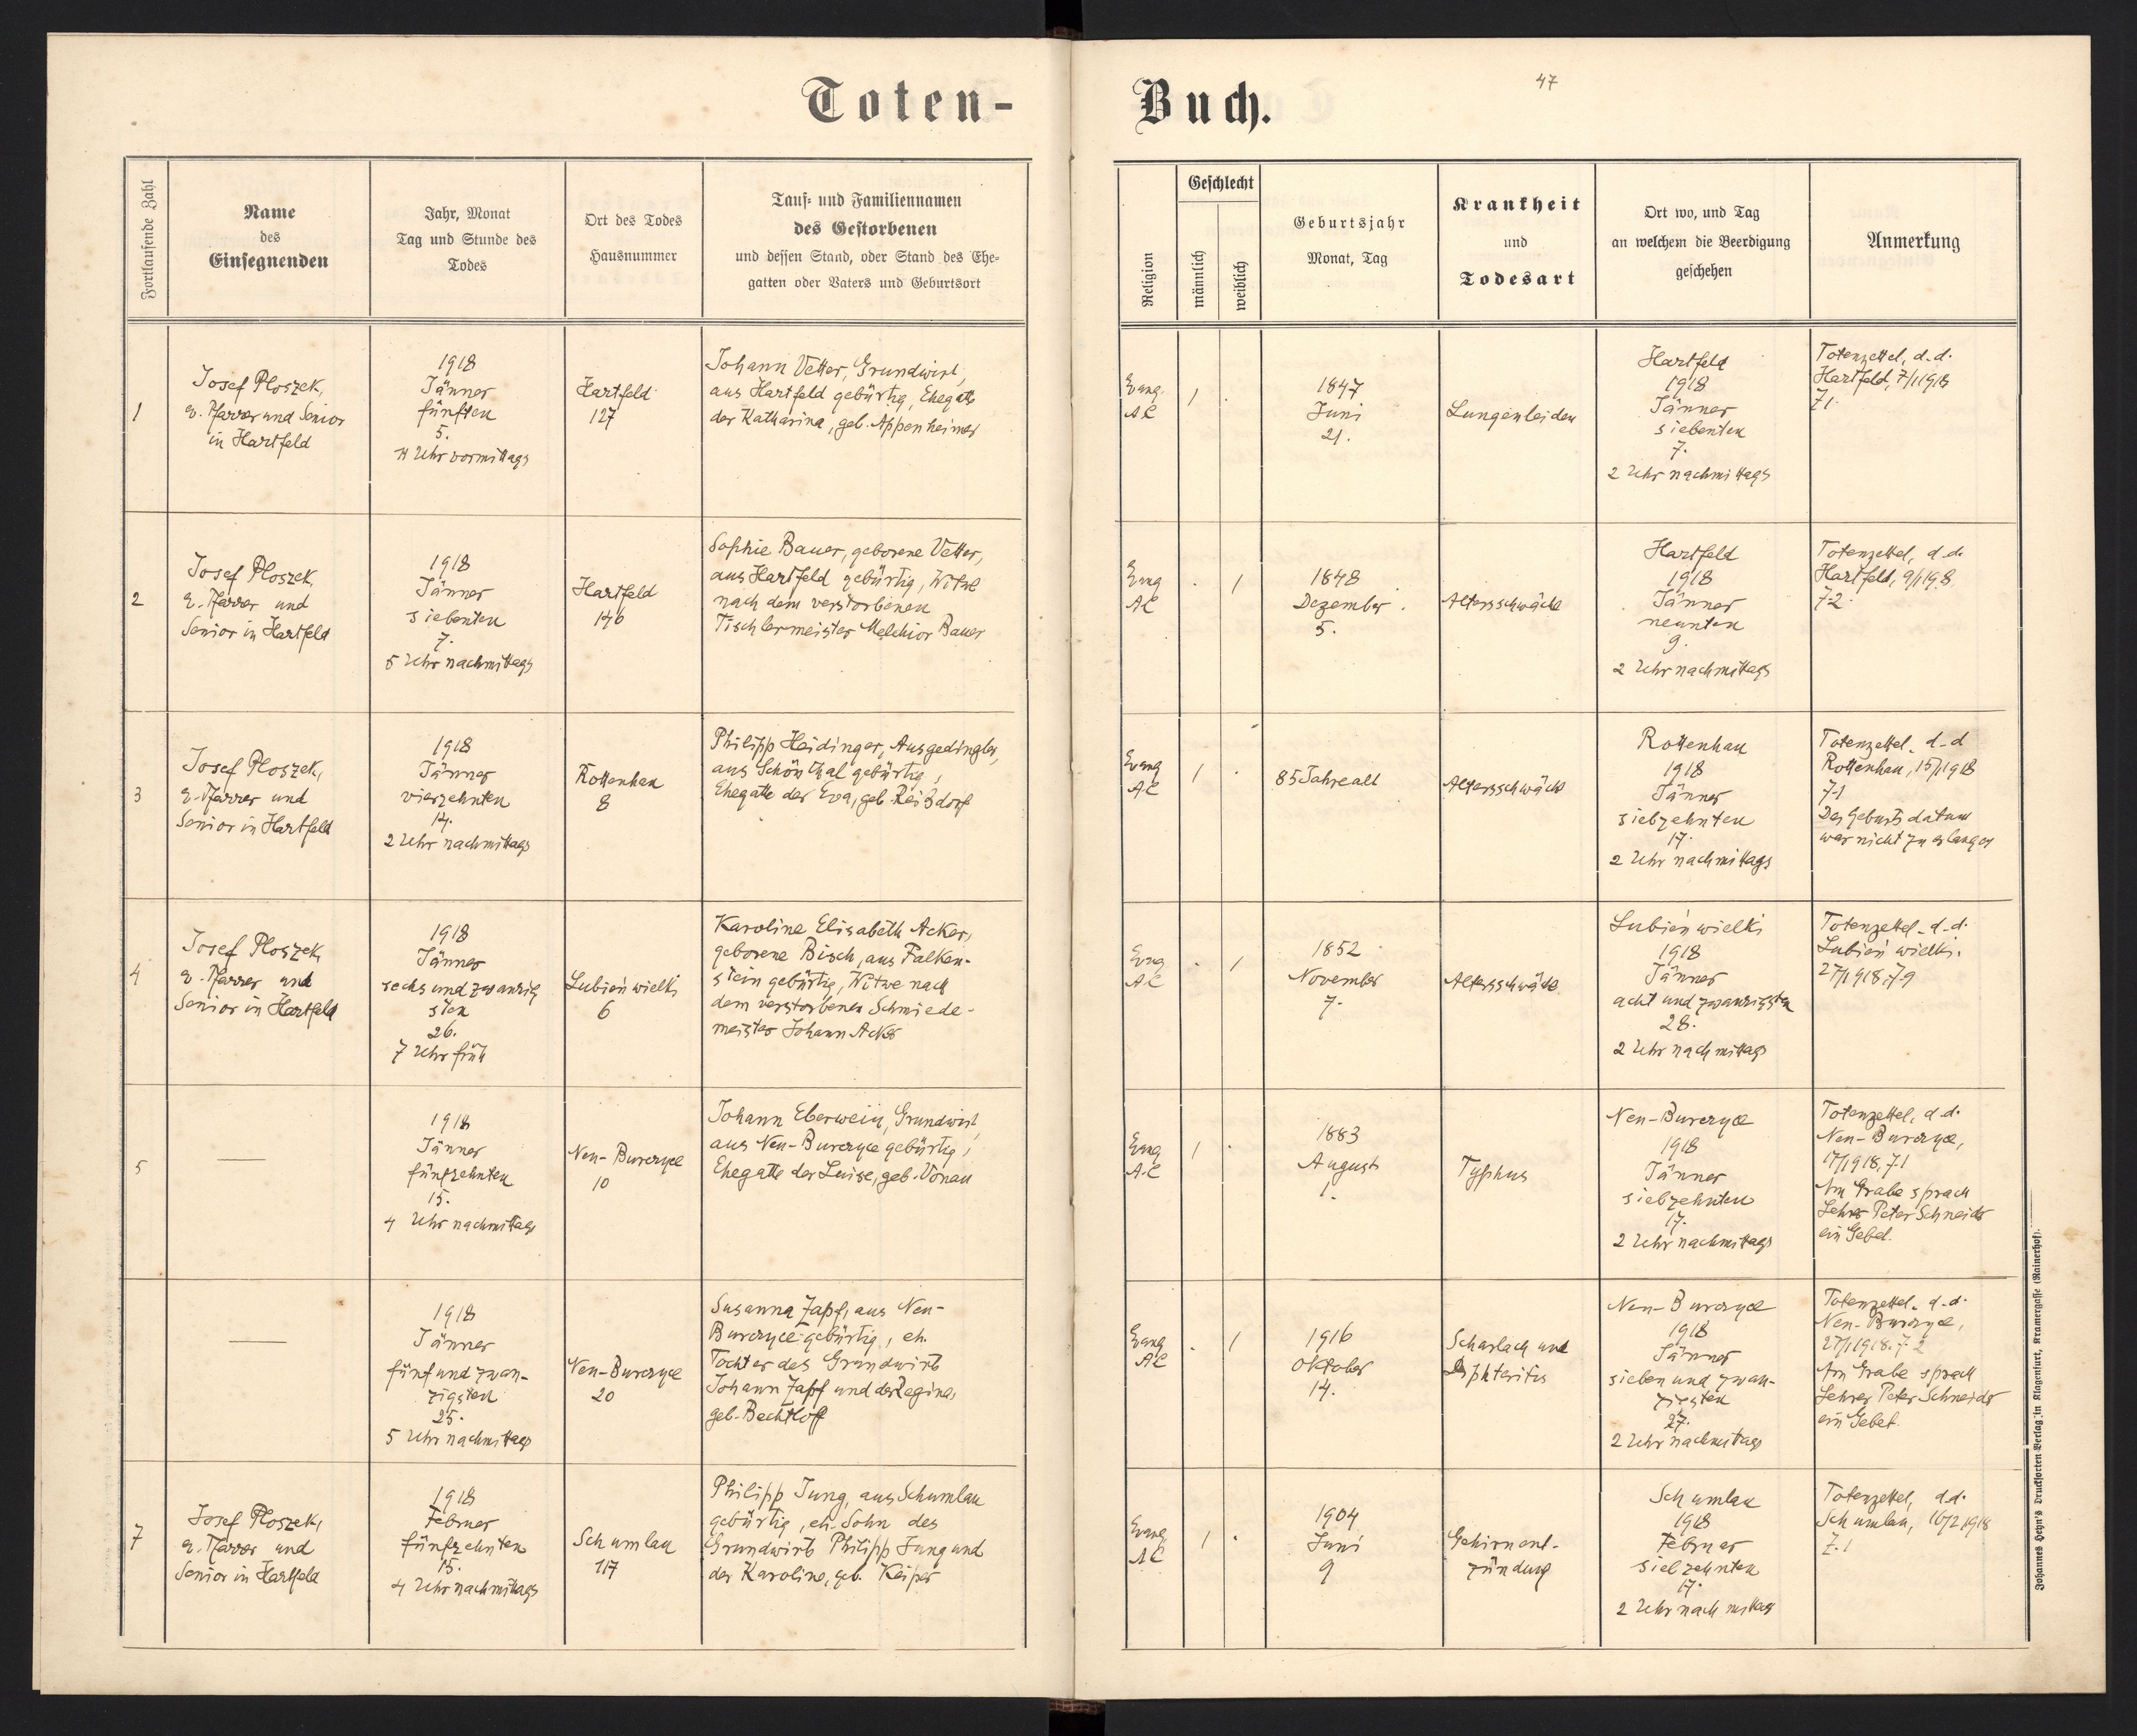 Toten-
Buch.
47
Fortlaufende Zahl
Name
des
Einsegnenden
Jahr, Monat
Tag und Stunde des
Todes
Ort des Todes
Hausnummer
Tauf- und Familiennamen
des Gestorbenen
und dessen Stand, oder Stand des Ehe-
gatten oder Vaters und Geburtsort
Religion
Geschlecht
männlich
weiblich
Geburtsjahr
Monat, Tag
Krankheit
und
Todesart
Ort wo, und Tag
an welchem die Beerdigung
geschehen
Anmerkung
1
Josef Ploszek,
e. Pfarrer und Senior
in Hartfeld
1918
Jänner
fünften
5.
11 Uhr vormittags
Hartfeld
127
Johann Vetter, Grundwirt,
aus Hartfeld gebürtig, Ehegatte
der Katharina, geb. Appenheimer
Evang.
AC
1
.
1847
Juni
21.
Lungenleiden
Hartfeld
1918
Jänner
siebenten
7.
2 Uhr nachmittags
Totenzettel, d.d.
Hartfeld, 7/1 1918
Z1.
2
Josef Ploszek,
e. Pfarrer und
Senior in Hartfeld
1918
Jänner
siebenten
7.
5 Uhr nachmittags
Hartfeld
146
Sophie Bauer, geborene Vetter,
aus Hartfeld gebürtig, Witwe
nach dem verstorbenen
Tischlermeister Melchior Bauer
Evang
AC
.
1
1848
Dezember
5.
Altersschwäche
Hartfeld
1918
Jänner
neunten
9.
2 Uhr nachmittags
Totenzettel, d.d.
Hartfeld, 9/1 198
Z.2.
3
Josef Ploszek,
e. Pfarrer und
Senior in Hartfeld
1918
Jänner
vierzehnten
14.
2 Uhr nachmittags
Rottenhan
8
Philipp Heidinger, Ausgedingler,
aus Schönthal gebürtig,
Ehegatte der Eva, geb. Reißdorf
Evang
AC
1
.
85 Jahre alt
Altersschwäche
Rottenhan
1918
Jänner
siebzehnten
17.
2 Uhr nachmittags
Totenzettel, d.d
Rottenhan, 15/1 1918
Z.1
Das Geburtsdatum
war nicht zu erlangen
4
Josef Ploszek,
e. Pfarrer und
Senior in Hartfeld
1918
Jänner
sechsundzwanzig
sten
26.
7 Uhr früh
Lubień wielki
6
Karoline Elisabeth Acker,
geborene Bisch, aus Falken-
stein gebürtig, Witwe nach
dem verstorbenen Schmiede-
meister Johann Acker
Evang
AC
.
1
1852
November
7.
Altersschwäche
Lubień wielki
1918
Jänner
acht und zwanzigsten
28.
2 Uhr nachmittags
Totenzettel, d.d.
Lubień wielki.
27/1 1918, Z.9
5
1918
Jänner
fünfzehnten
15.
4 Uhr nachmittags
Neu-Burczyce
10
Johann Eberwein, Grundwirt,
aus Neu-Burczyce gebürtig,
Ehegatte der Luise, geb. Vonau
Evang
A.C
1
.
1883
August
1.
Typhus
Neu-Burczyce
1918
Jänner
siebzehnten
17.
2 Uhr nachmittags
Totenzettel, d.d.
Neu-Burczyce,
17/1 1918, Z.1
Am Grabe sprach
Lehrer Peter Schneider
ein Gebet.
1918
Jänner
fünf und zwan-
zigsten
25.
5 Uhr nachmittags
Neu-Burczyce
20
Susanna Zapf, aus Neu-
Burczyce gebürtig, eh.
Tochter des Grundwirts
Johann Zapf und der Regina,
geb. Bechtloff
Evang
AC
.
1
1916
Oktober
14.
Scharlach und
Diphteritis
Neu-Burczyce
1918
Jänner
sieben und zwan-
zigsten
27.
2 Uhr nachmittags
Totenzettel, d.d.
Neu-Burczyce,
27/1 1918, Z.2
Am Grabe sprach
Lehrer Peter Schneider
ein Gebet.
7
Josef Ploszek,
e. Pfarrer und
Senior in Hartfeld
1918
Februar
fünfzehnten
15.
4 Uhr nachmittags
Schumlau
117
Philipp Jung, aus Schumlau
gebürtig, eh. Sohn des
Grundwirts Philipp Jung und
der Karoline, geb. Keiper
Evang
AC
1
.
1904
Juni
9
Gehirnent-
zündung
Schumlau
1918
Februar
siebzehnten
17.
2 Uhr nachmittags
Totenzettel, d.d.
Schumlau, 16/2 1918
Z.1
Johannes Heyn's Drucksorten-Verlag in Klagenfurt, Kramergasse (Rainerhof).